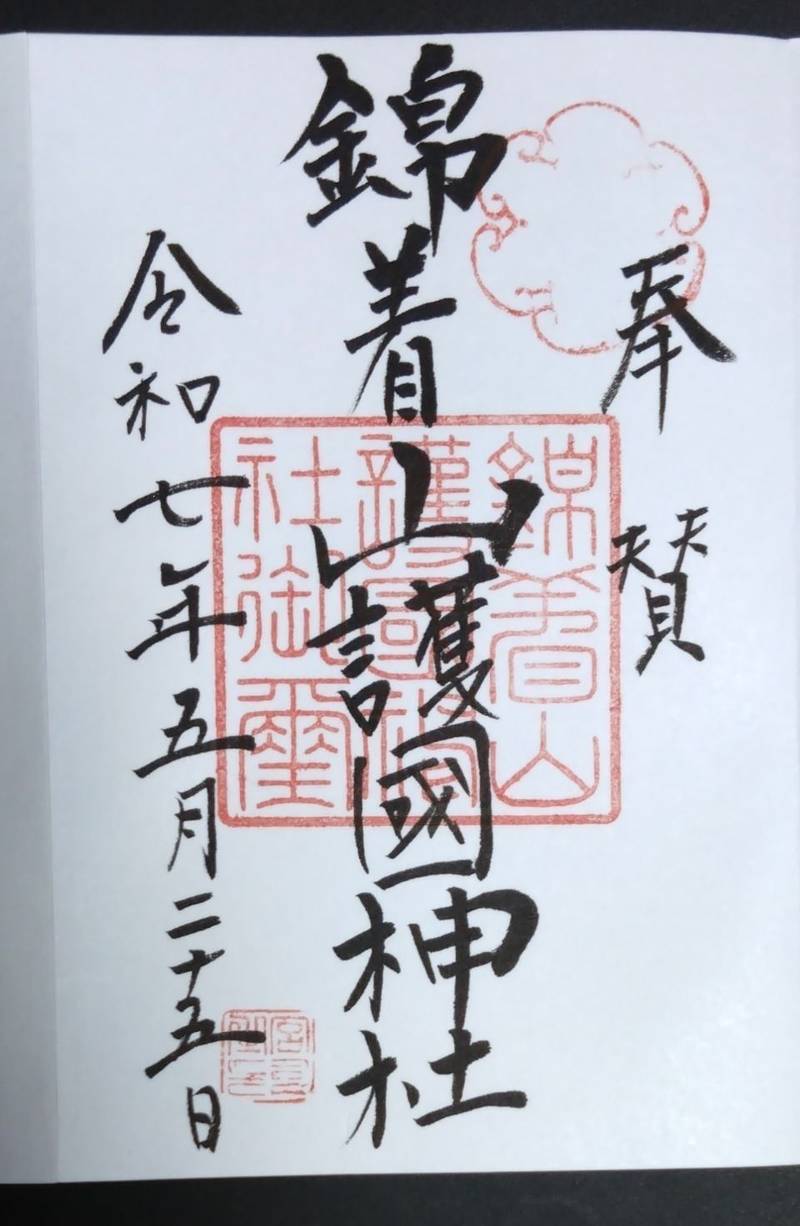 奉賛
錦着山護國神社
錦着山
護國神
社御璽
令和七年五月二十五日